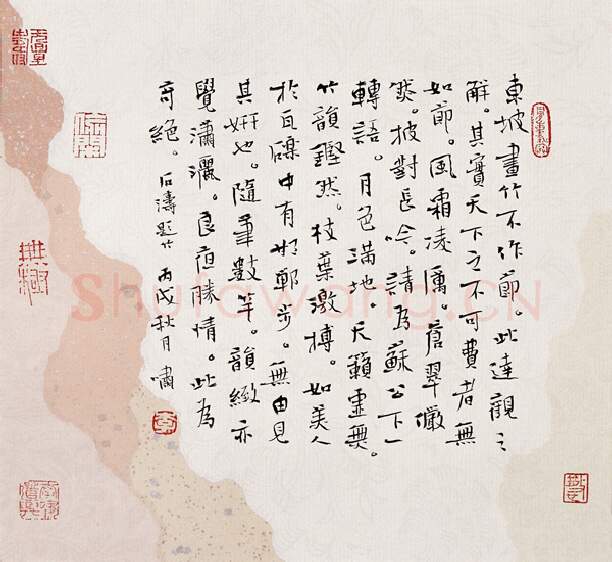 東坡畫竹不作節。此達觀之
解。其實天下之不可費者無
如節。風霜凌厲。蒼翠儼
然。披對長吟。請為蘇公下一
轉語。月色滿地。天籟虛無。
竹韻鏗然。枝葉激搏。如美人
於瓦礫中有邯鄲步。無由見
其妍也。隨筆數竿。韻緻亦
覺瀟灑。良夜勝情。此為
奇絕。石濤題竹 丙戌秋月 嘯
無極
Shufawang.CN